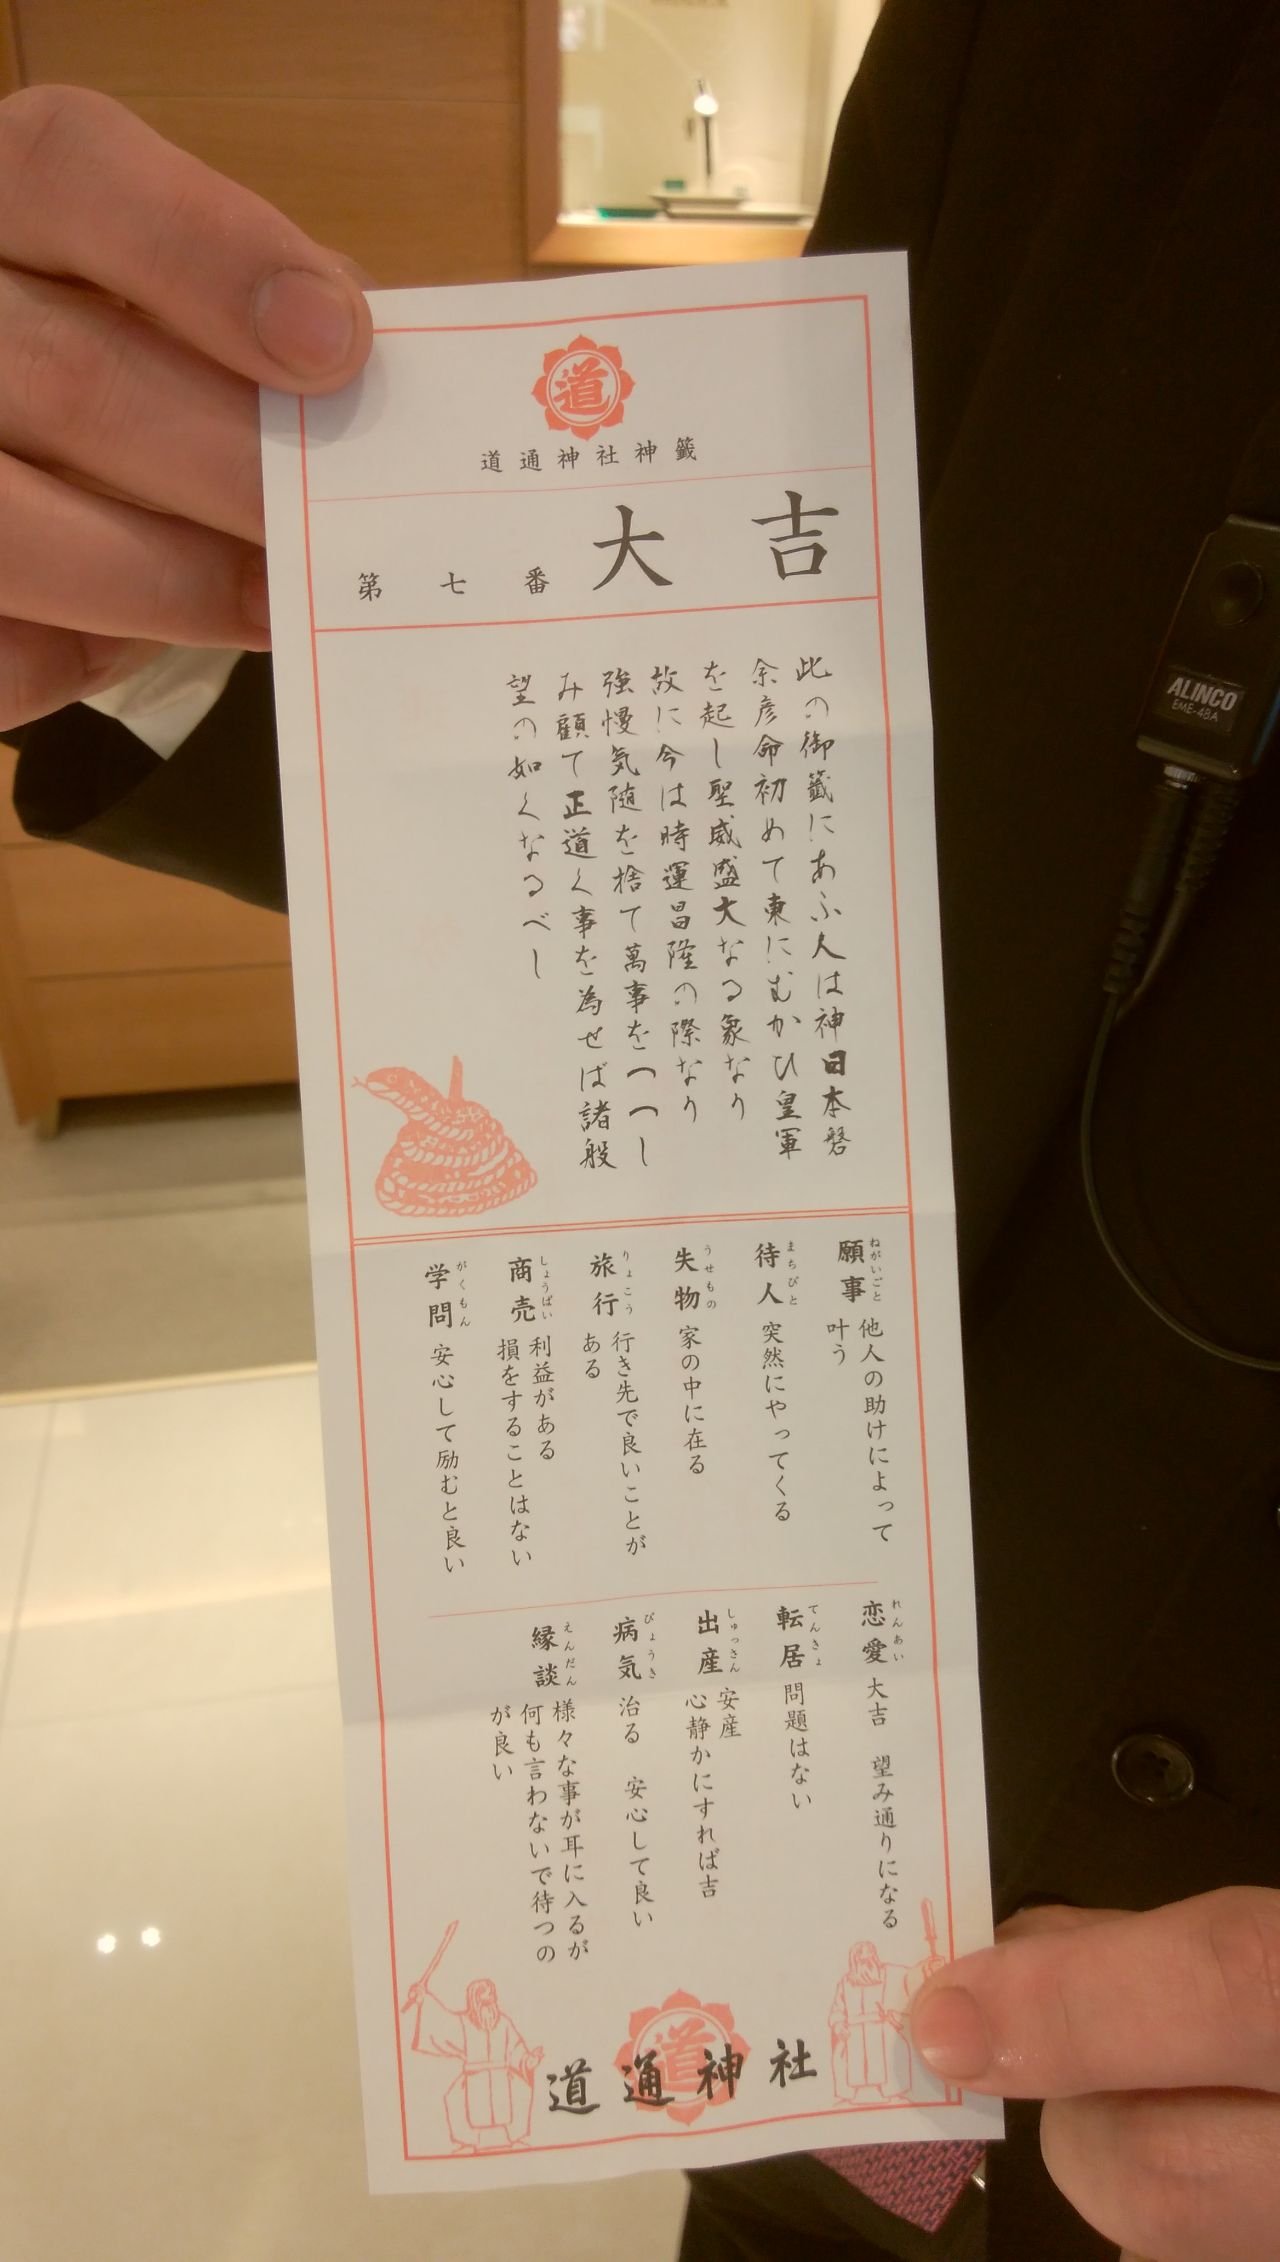 道
道通神社神籤
第七番 大吉
此の御籤にあふ人は神日本磐
余彦命初めて東にむかひ皇軍
を起し聖威盛大なる象なり
故に今は時運昌隆の際なり
強慢気随を捨て萬事をつつし
み顧て正道く事を為せば諸般
望の如くなるべし
願事 ねがいごと
他人の助けによって
叶う
待人 まちびと
突然にやってくる
失物 うせもの
家の中に在る
旅行 りょこう
行き先で良いことが
ある
商売 しょうばい
利益がある
損をすることはない
学問 がくもん
安心して励むと良い
恋愛 れんあい
大吉 望み通りになる
転居 てんきょ
問題はない
出産 しゅっさん
安産
心静かにすれば吉
病気 びょうき
治る 安心して良い
縁談 えんだん
様々な事が耳に入るが
何も言わないで待つの
が良い
道
道通神社
ALINCO
EME-48A